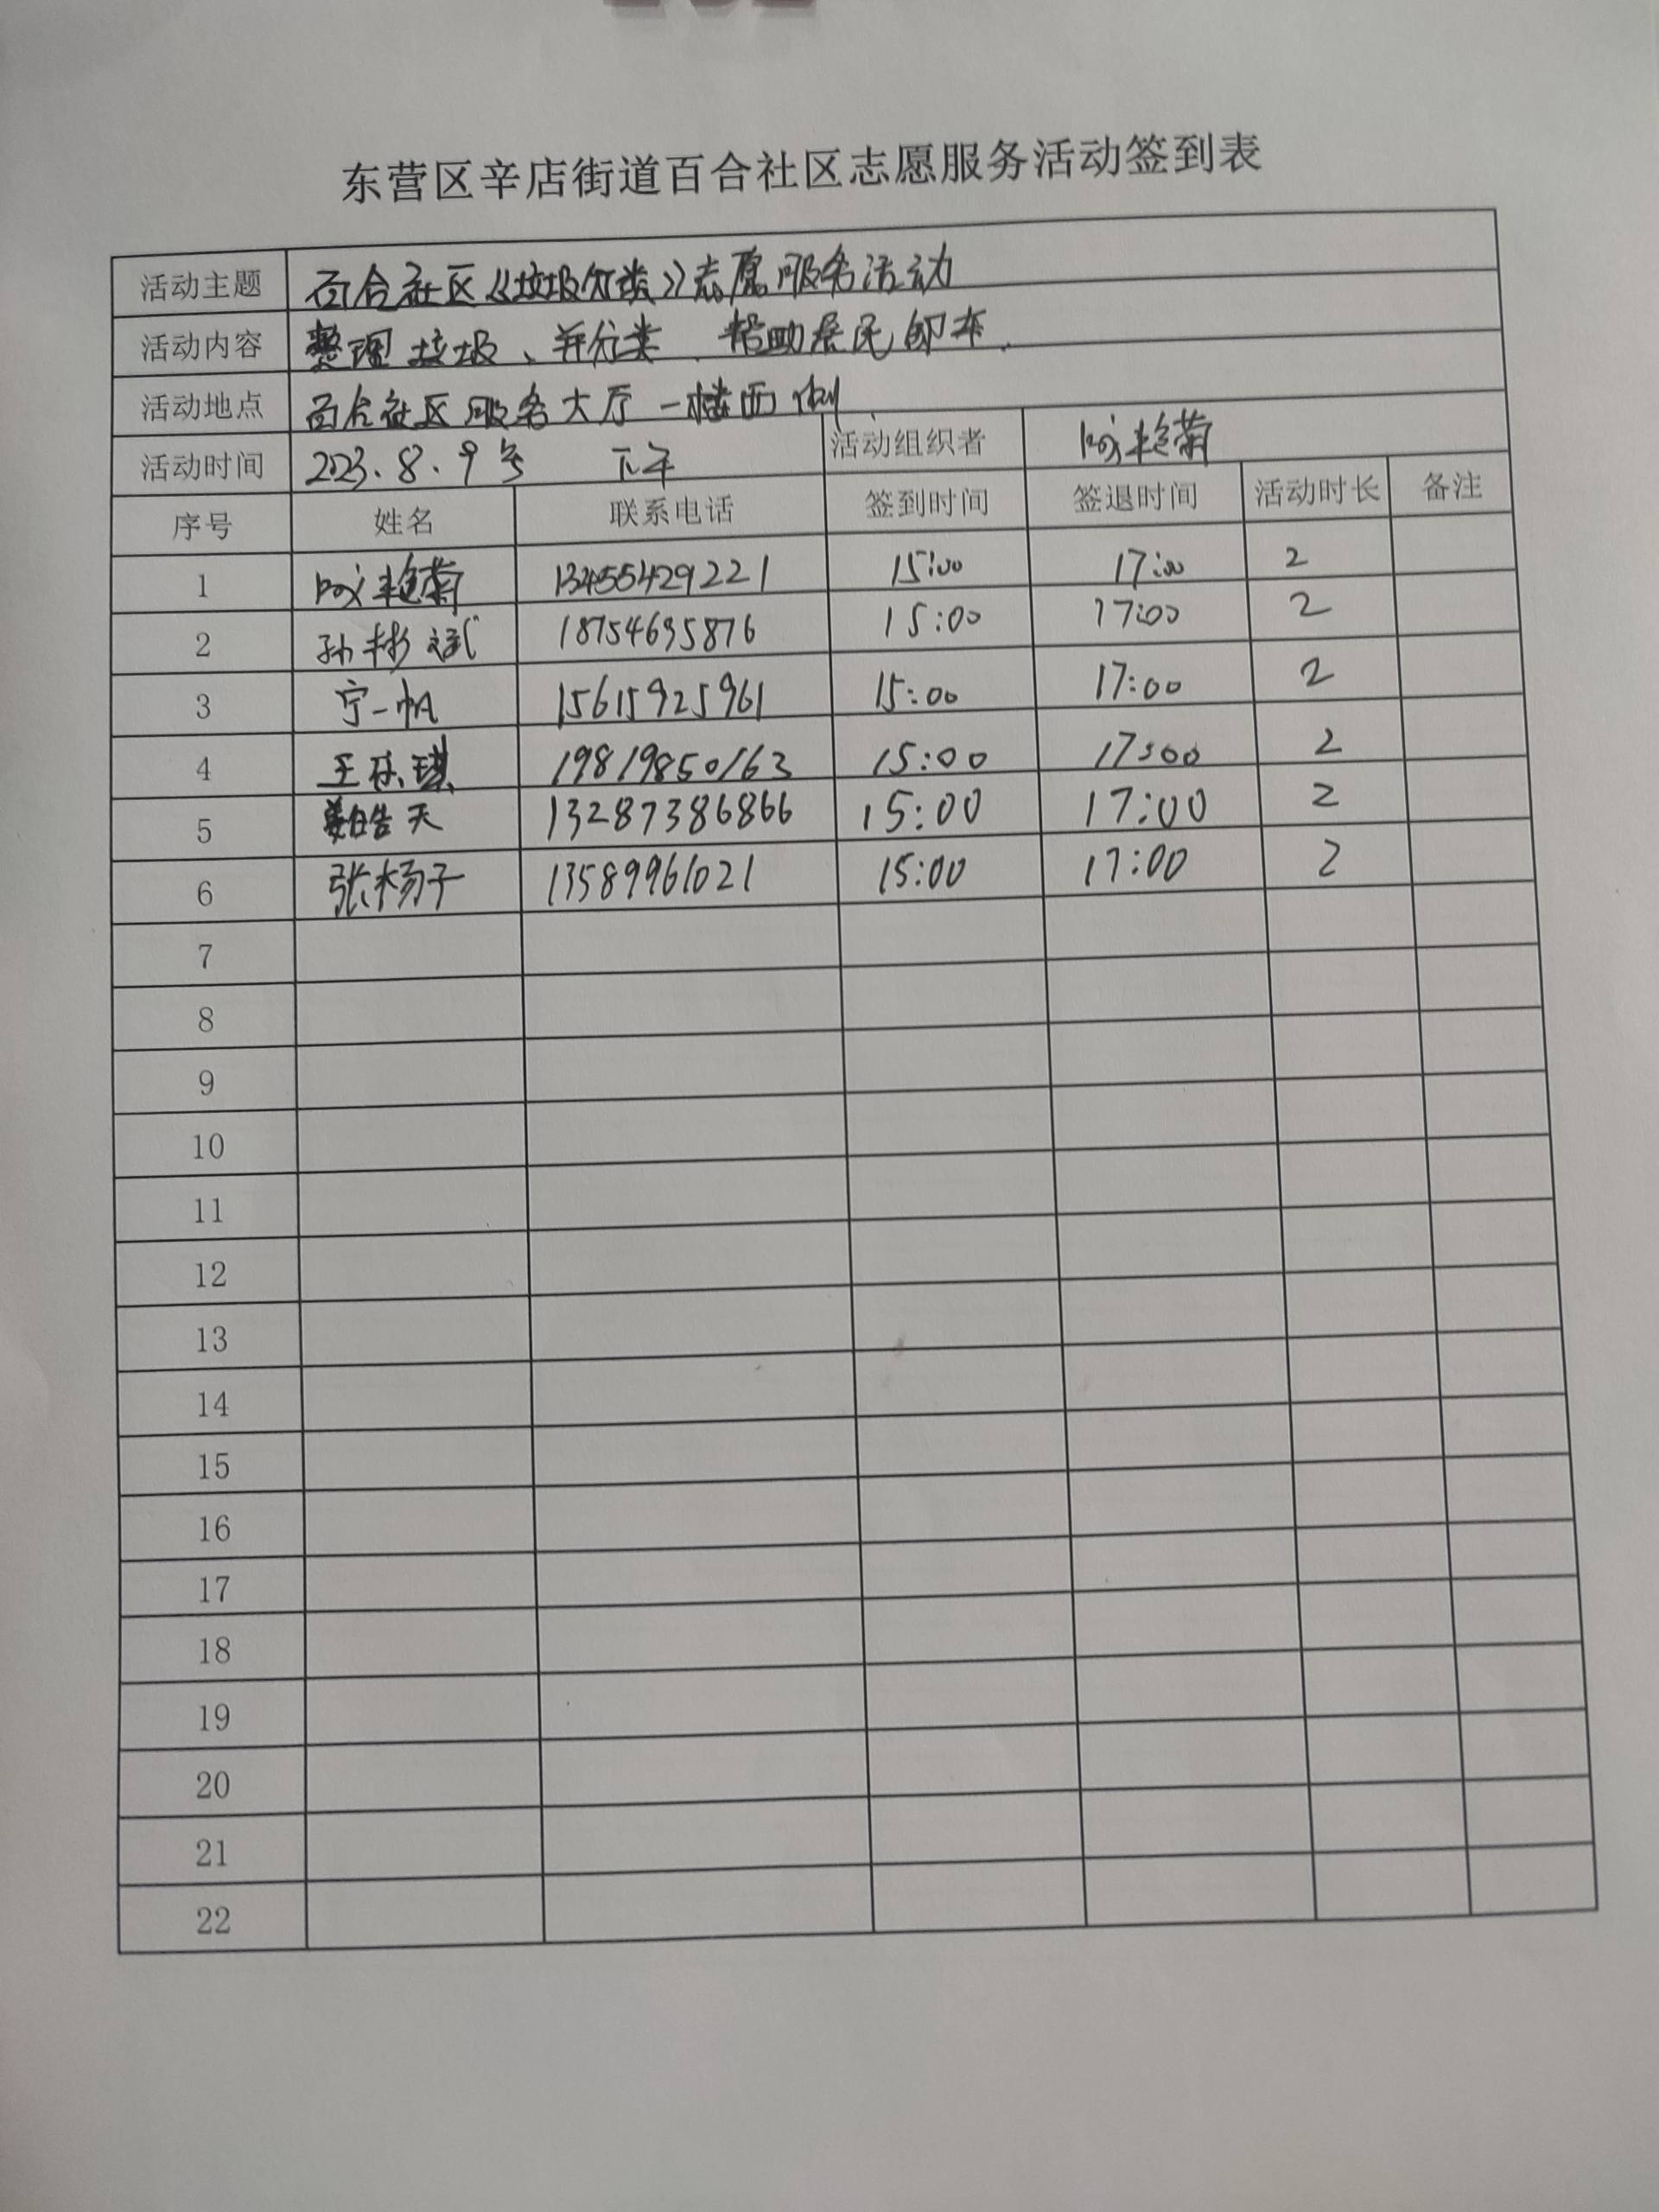 东营区辛店街道百合社区志愿服务活动签到表
活动主题 百合社区《垃圾分类》志愿服务活动
活动内容 整理垃圾、并分类、帮助居民卸车.
活动地点 百合社区服务大厅一楼西侧
活动时间 2023.8.9号 下午 活动组织者 艳菊
序号 姓名 联系电话 签到时间 签退时间 活动时长 备注
1 艳菊 13455429221 15:00 17:00 2
2 孙彬斌 18754695876 15:00 17:00 2
3 宁一帆 15615925961 15:00 17:00 2
4 王 琪 19819850163 15:00 17:00 2
5 姜皓天 13287386866 15:00 17:00 2
6 张杨子 13589961021 15:00 17:00 2
7
8
9
10
11
12
13
14
15
16
17
18
19
20
21
22